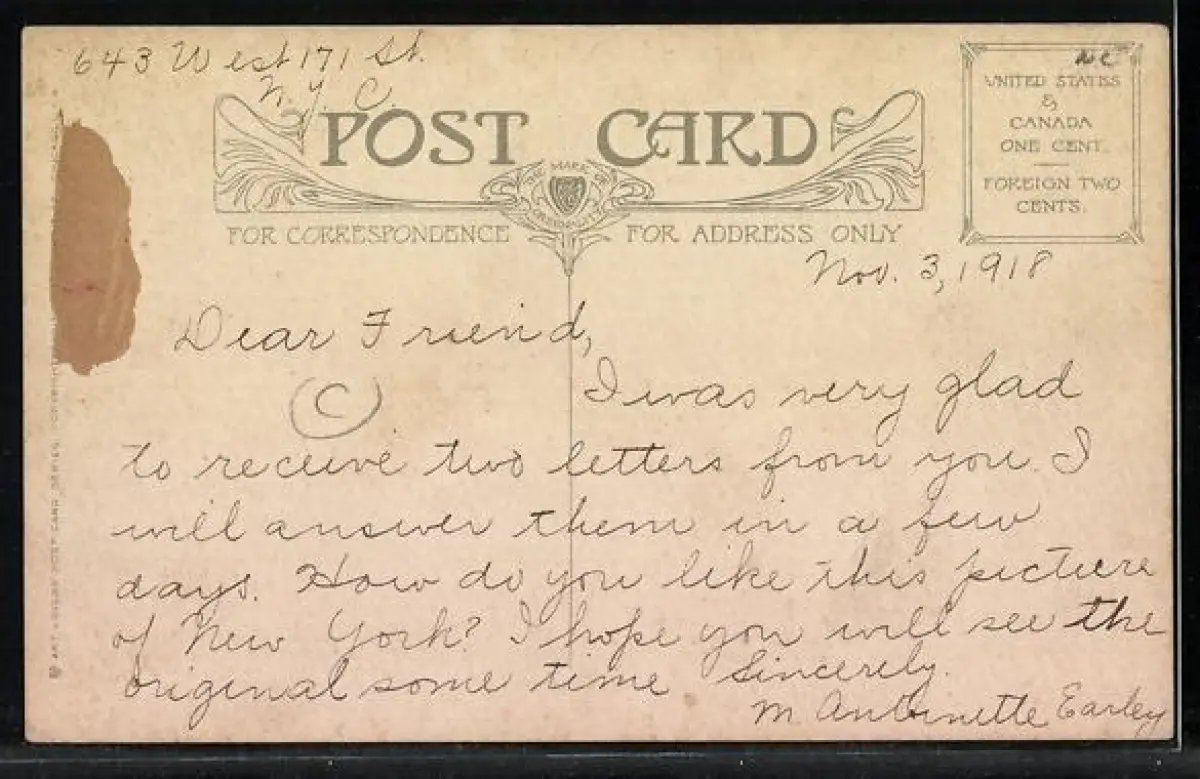 643 West 171 St.
N. Y. C.
POST CARD
THE MARK OF
NC
UNITED STATES
&
CANADA
ONE CENT.
FOREIGN TWO
CENTS.
FOR CORRESPONDENCE
FOR ADDRESS ONLY
Nov. 3, 1918
Dear Friend,
C
I was very glad
to receive two letters from you. I
will answer them in a few
days. How do you like this picture
of New York? I hope you will see the
original some time. Sincerely.
M Antoinette Earley
POST CARD SERIES